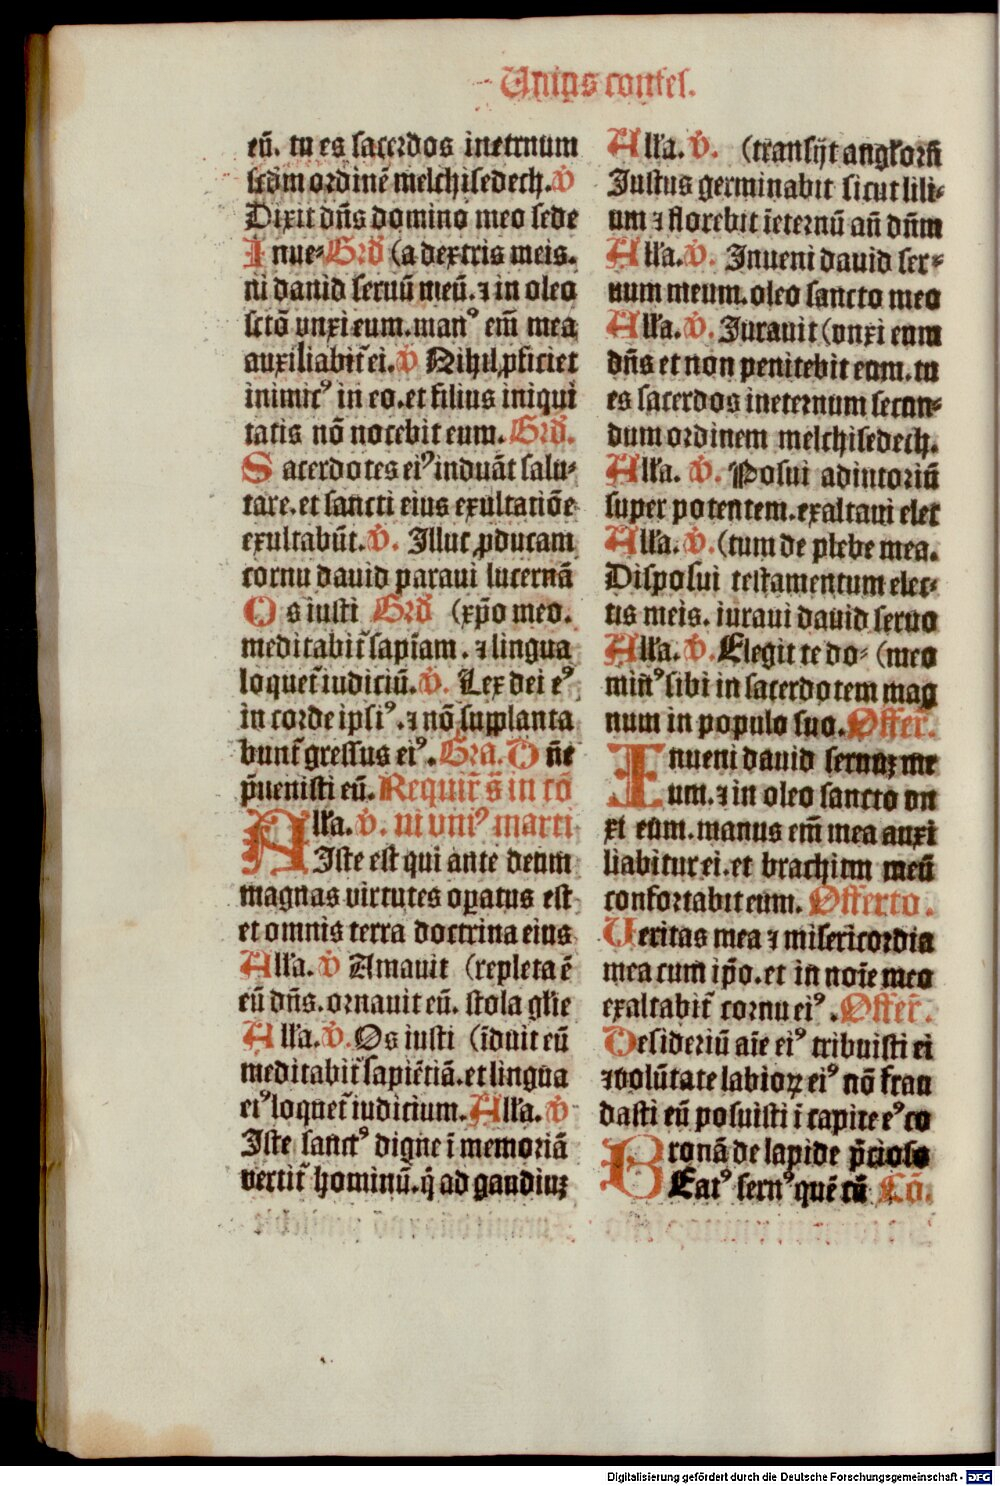 Unius confes.
eū. tu es sacerdos inetrnum
scd̄m ordinē melchisedech. v̄
Dixit dn̄s domino meo sede
Inue⸗ Grd̄ (a dextris meis.
ni dauid seruū meū. ⁊ in oleo
sctō vnxi eum. manꝰ em̄ mea
auxiliabit̄ ei. v̄ Nihil ꝓficiet
inimicꝰ in eo. et filius iniqui
tatis nō nocebit eum. Grd̄.
Sacerdotes eiꝰ induāt salu⸗
tare. et sancti eius exultatiōe
exultabūt. v̄. Illuc ꝓducam
cornu dauid paraui lucernā
Os iusti Grd̄ (xp̄o meo.
meditabit̄ sapīam. ⁊ lingua
loquet̄ iudiciū. v̄. Lex dei eꝰ
in corde ipsiꝰ. ⁊ nō supplanta
bunt̄ gressus eiꝰ. Gra. Dn̄e
p̄uenisti eū. Requir̄ s̄ in cō
Alľa. v̄. ni vniꝰ marti
Iste est qui ante deum
magnas virtutes oꝑatus est
et omnis terra doctrina eius
Alľa. v̄ Amauit (repleta ē
eū dn̄s. ornauit eū. stola gl̄ie
Alľa. v̄. Os iusti (īduit eū
meditabit̄ sapiētiā. et lingua
eiꝰ loquet̄ iudicium. Alľa. v̄
Iste sanctꝰ digne ī memoriā
vertit̄ hominū. q̄ ad gaudiuꝫ
Alľa. v̄. (transijt angľorū
Iustus germinabit sicut lili⸗
um ⁊ florebit īeternū an̄ dn̄m
Alľa. v̄. Inueni dauid ser⸗
uum meum. oleo sancto meo
Alľa. v̄. Iurauit (vnxi eum
dn̄s et non penitebit eum. tu
es sacerdos ineternum secun⸗
dum ordinem melchisedech.
Alľa. v̄. Posui adiutoriū
super potentem. exaltaui elec
Alľa. v̄. (tum de plebe mea.
Disposui testamentum elec⸗
tis meis. iuraui dauid seruo
Alľa. v̄. Elegit te do⸗ (meo
minꝰ sibi in sacerdotem mag
num in populo suo. Offer̄.
Inueni dauid seruuꝫ me
um. ⁊ in oleo sancto vn
xi eum. manus em̄ mea auxi
liabitur ei. et brachium meū
confortabit eum. Offerto.
Ueritas mea ⁊ misericordia
mea cum ip̄o. et in noīe meo
exaltabit̄ cornu eiꝰ. Offer̄.
Desideriū aīe eiꝰ tribuisti ei
⁊ volūtate labioꝝ eiꝰ nō frau
dasti eū posuisti ī capite eꝰ co
ronā de lapide p̄cioso
Beatꝰ seruꝰ quē cū Cō.
Digitalisierung gefördert durch die Deutsche Forschungsgemeinschaft - DFG